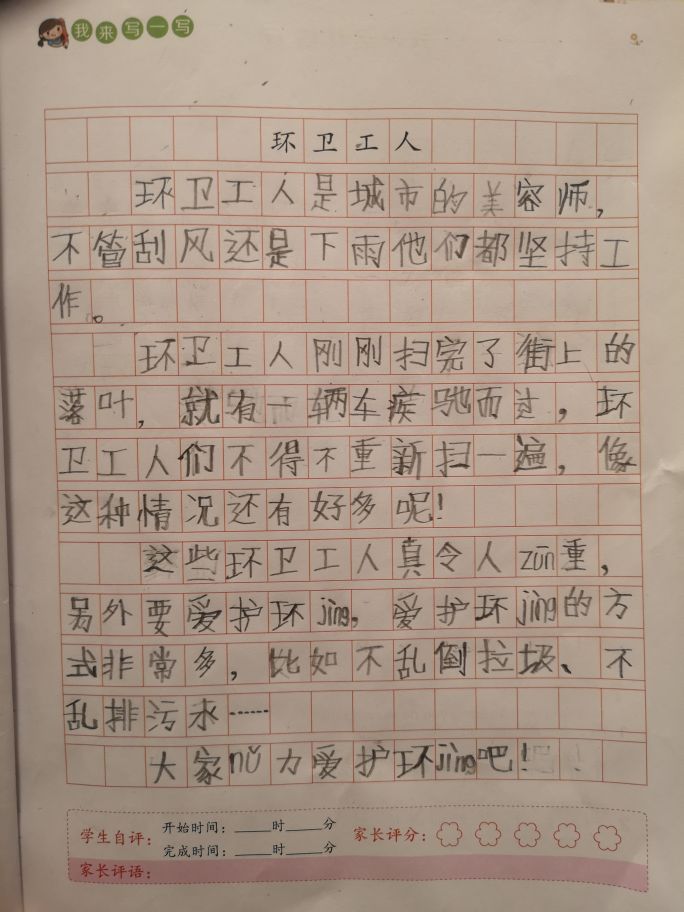 我来写一写
环卫工人
环卫工人是城市的美容师，
不管刮风还是下雨他们都坚持工
作。
环卫工人刚刚扫完了街上的
落叶，就有一辆车疾驰而过，环
卫工人们不得不重新扫一遍，像
这种情况还有好多呢！
这些环卫工人真令人zūn重，
另外要爱护环jìng，爱护环jìng的方
式非常多，比如不乱倒垃圾、不
乱排污水……
大家nǔ力爱护环jìng吧！
学生自评：开始时间：____时____分 家长评分：
完成时间：____时____分
家长评语：